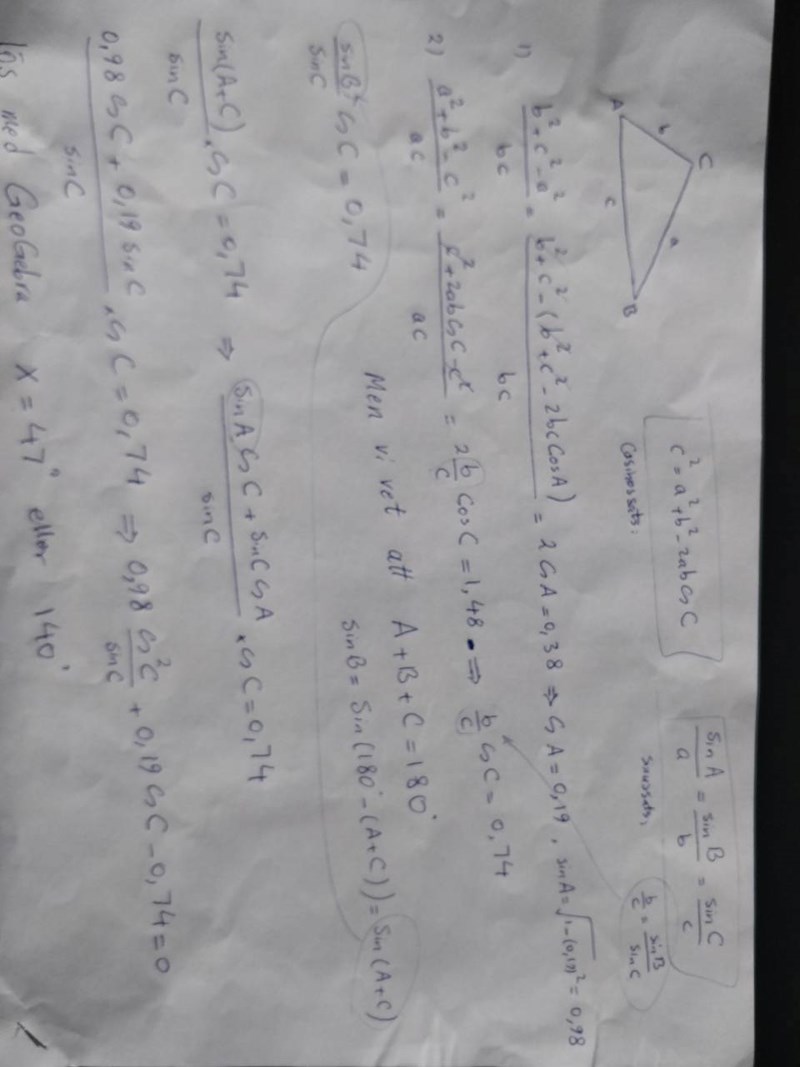 C
b
a
A
c
B
c² = a² + b² - 2ab cos C
Cosinussats:
sinA/a = sinB/b = sinC/c
sinussats:
b/c = sinB/sinC
1) (b² + c² - a²)/bc = (b² + c² - (b² + c² - 2bc CosA))/bc = 2 cos A = 0,38 ⇒ cos A = 0,19 , sinA = √1-(0,19)² = 0,98
2) (a² + b² - c²)/ac = (c² + 2ab cos C - c²)/ac = 2 b/c cos C = 1,48 ⇒ b/c cos C = 0,74
Men vi vet att A + B + C = 180°
sinB = Sin(180° - (A+C)) = Sin(A+C)
sinB/sinC · cos C = 0,74
sin(A+C)/sinC · cos C = 0,74 ⇒ (sinA cos C + sinC cos A)/sinC · cos C = 0,74
(0,98 cos C + 0,19 sinC)/sinC · cos C = 0,74 ⇒ 0,98 cos²C/sinC + 0,19 cos C - 0,74 = 0
lös med GeoGebra X = 47° eller 140°